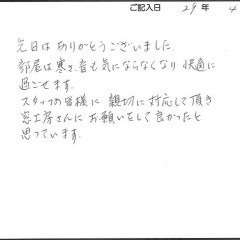 ご記入日 29 年 4
先日は ありがとうございました.
部屋は寒さ、音も気にならなくなり 快適に
過ごせます.
スタッフの皆様に 親切に対応して頂き
窓工房さんに お願いをして良かったと
思っています.